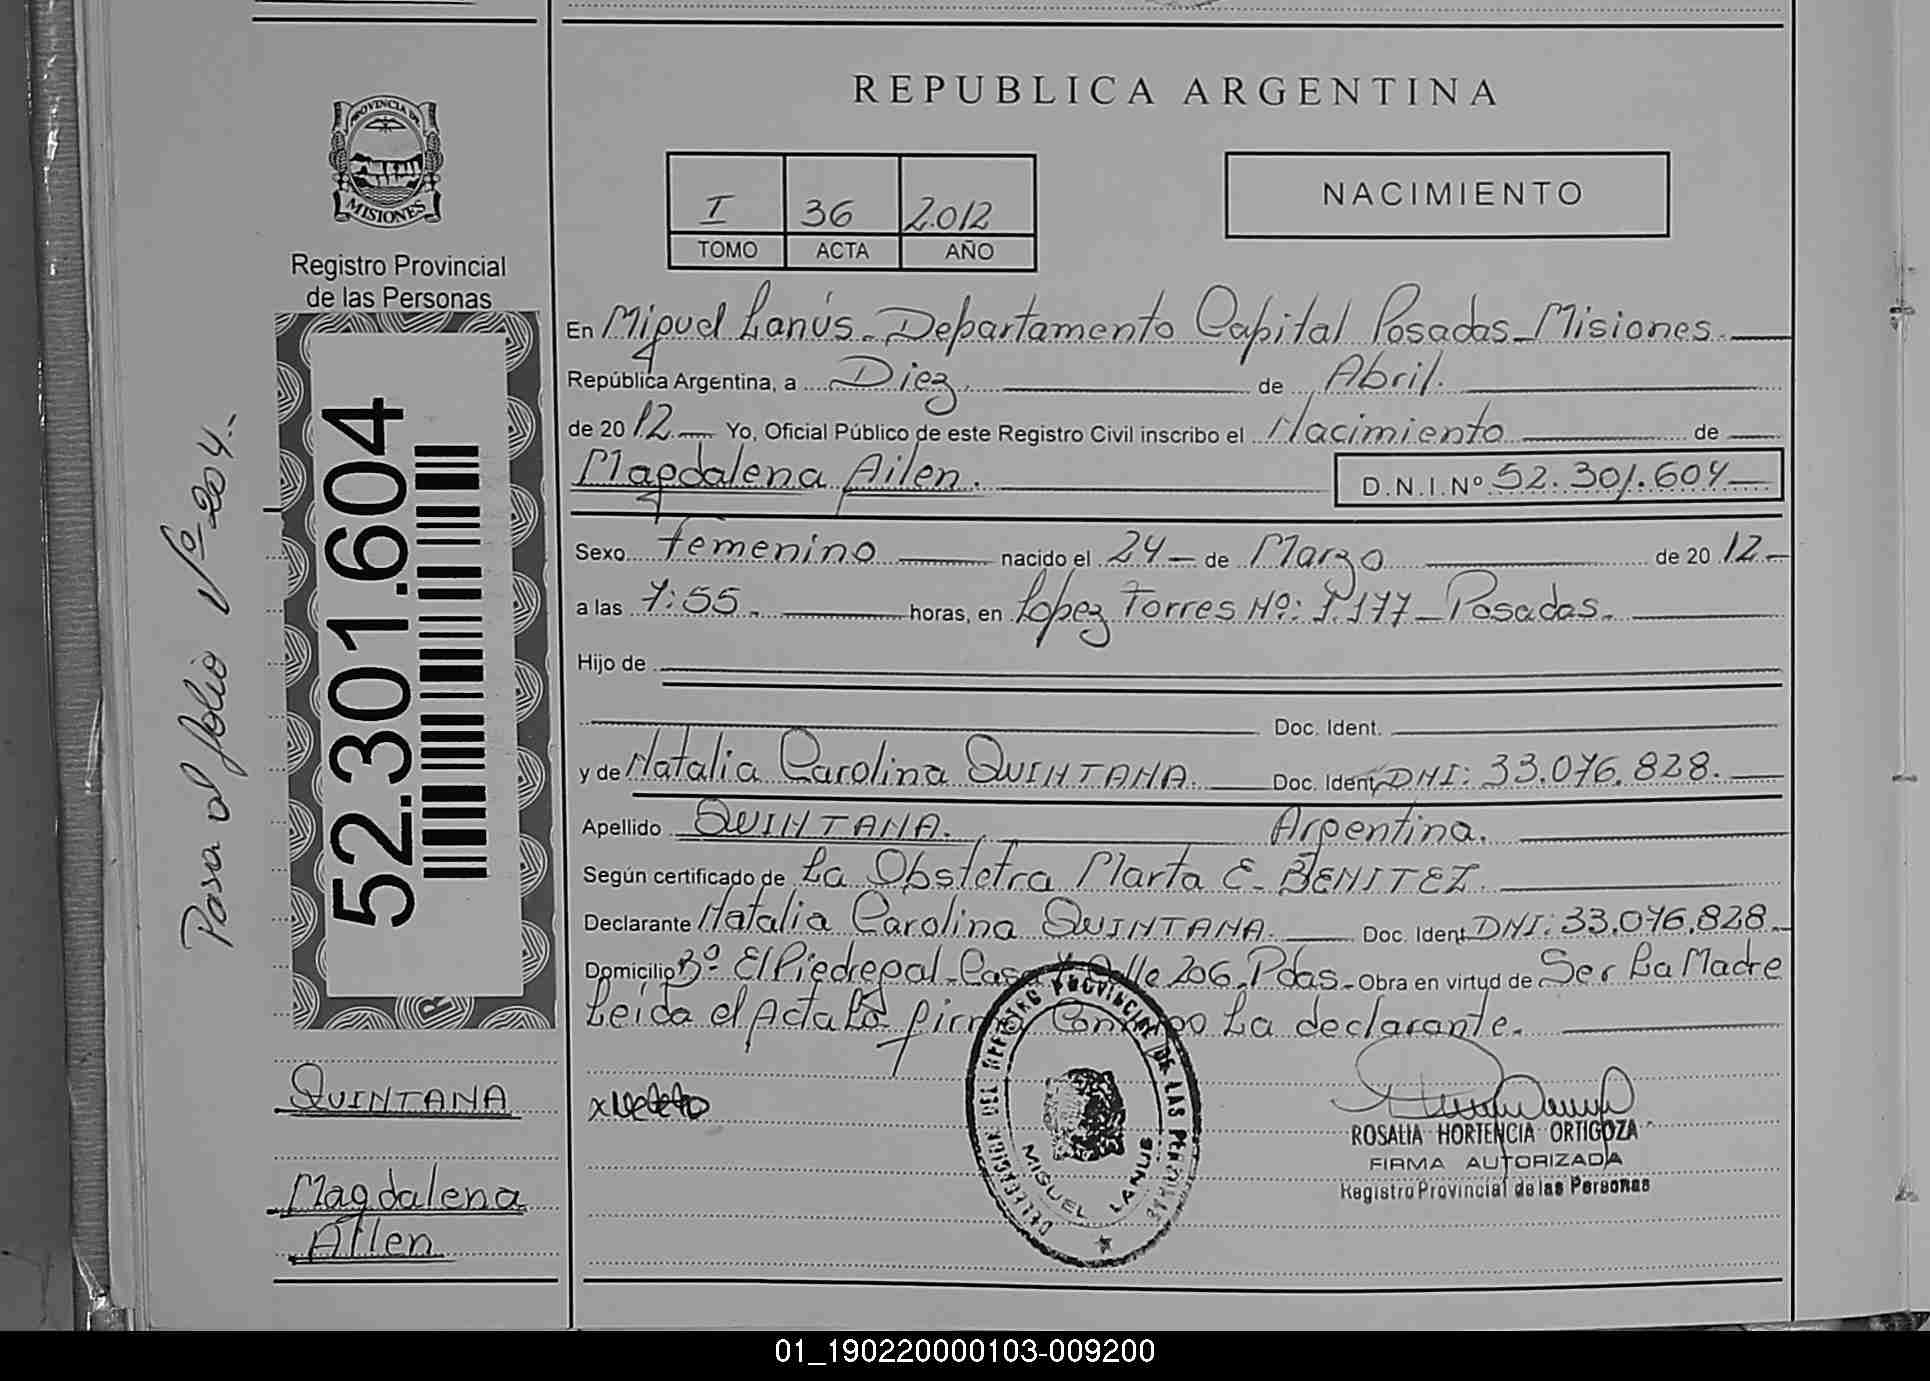 REPUBLICA ARGENTINA
PROVINCIA DE
MISIONES
Registro Provincial
de las Personas
I 36 2.012
TOMO ACTA AÑO
NACIMIENTO
En Miguel Lanús - Departamento Capital Posadas - Misiones.
República Argentina, a Diez. de Abril.
de 20 12 Yo, Oficial Público de este Registro Civil inscribo el Nacimiento de
Magdalena Ailen. D.N.I.Nº 52.301.604
Sexo Femenino nacido el 24 de Marzo de 20 12
a las 7:55. horas, en Lopez Torres Nº: 1.177 - Posadas.
Hijo de
Doc. Ident.
y de Natalia Carolina QUINTANA. Doc. Ident. DNI: 33.076.828.
Apellido QUINTANA. Argentina.
Según certificado de La Obstetra Marta E. BENITEZ.
Declarante Natalia Carolina QUINTANA. Doc. Ident. DNI: 33.076.828.
Domicilio Bº El Piedrepal - Casa 4 Calle 206. Pdas. Obra en virtud de Ser La Madre
Leída el Acta La firma Conmigo La declarante.
52.301.604
Pasa al folio Nº 204.-
QUINTANA
Magdalena
Ailen
DELEGACION DEL REGISTRO PROVINCIAL DE LAS PERSONAS
MIGUEL LANUS
ROSALIA HORTENCIA ORTIGOZA
FIRMA AUTORIZADA
Registro Provincial de las Personas
01_190220000103-009200